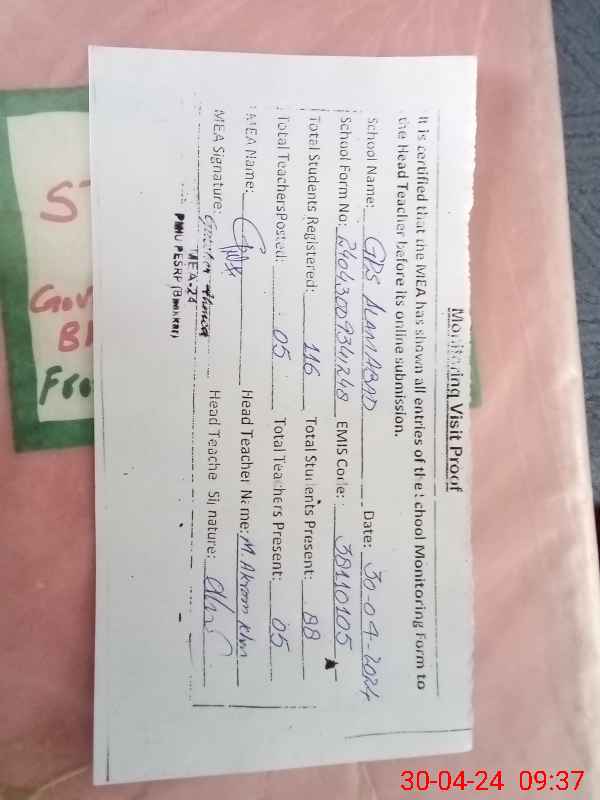 Monitoring Visit Proof
It is certified that the MEA has shown all entries of the School Monitoring Form to
the Head Teacher before its online submission.
School Name: GPS ALAMABAD Date: 30-04-2024
School Form No: 24043009341248 EMIS Code: 38110105
Total Students Registered: 116 Total Students Present: 88
Total Teachers Posted: 05 Total Teachers Present: 05
MEA Name: Head Teacher Name: M. Akram Khan
MEA Signature: Head Teache Signature:
MEA-24
PMIU PESRP (Bhakkar)
ST
Gov
B
Fro
30-04-24 09:37